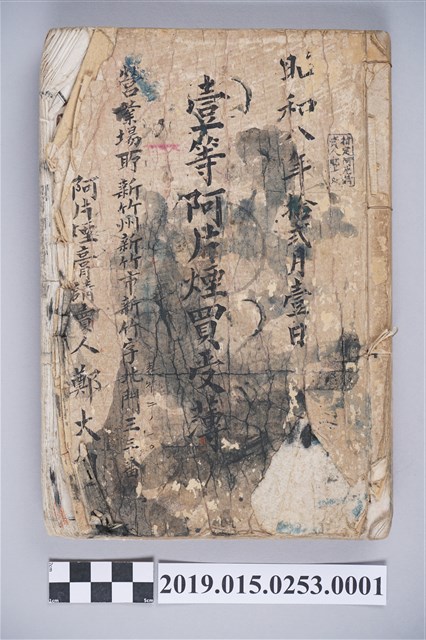 昭和八年拾弍月壹日
壹等阿片煙買受簿
營業場所新竹州新竹市新竹字北門三三番
阿片煙膏請賣人鄭火
2019.015.0253.0001